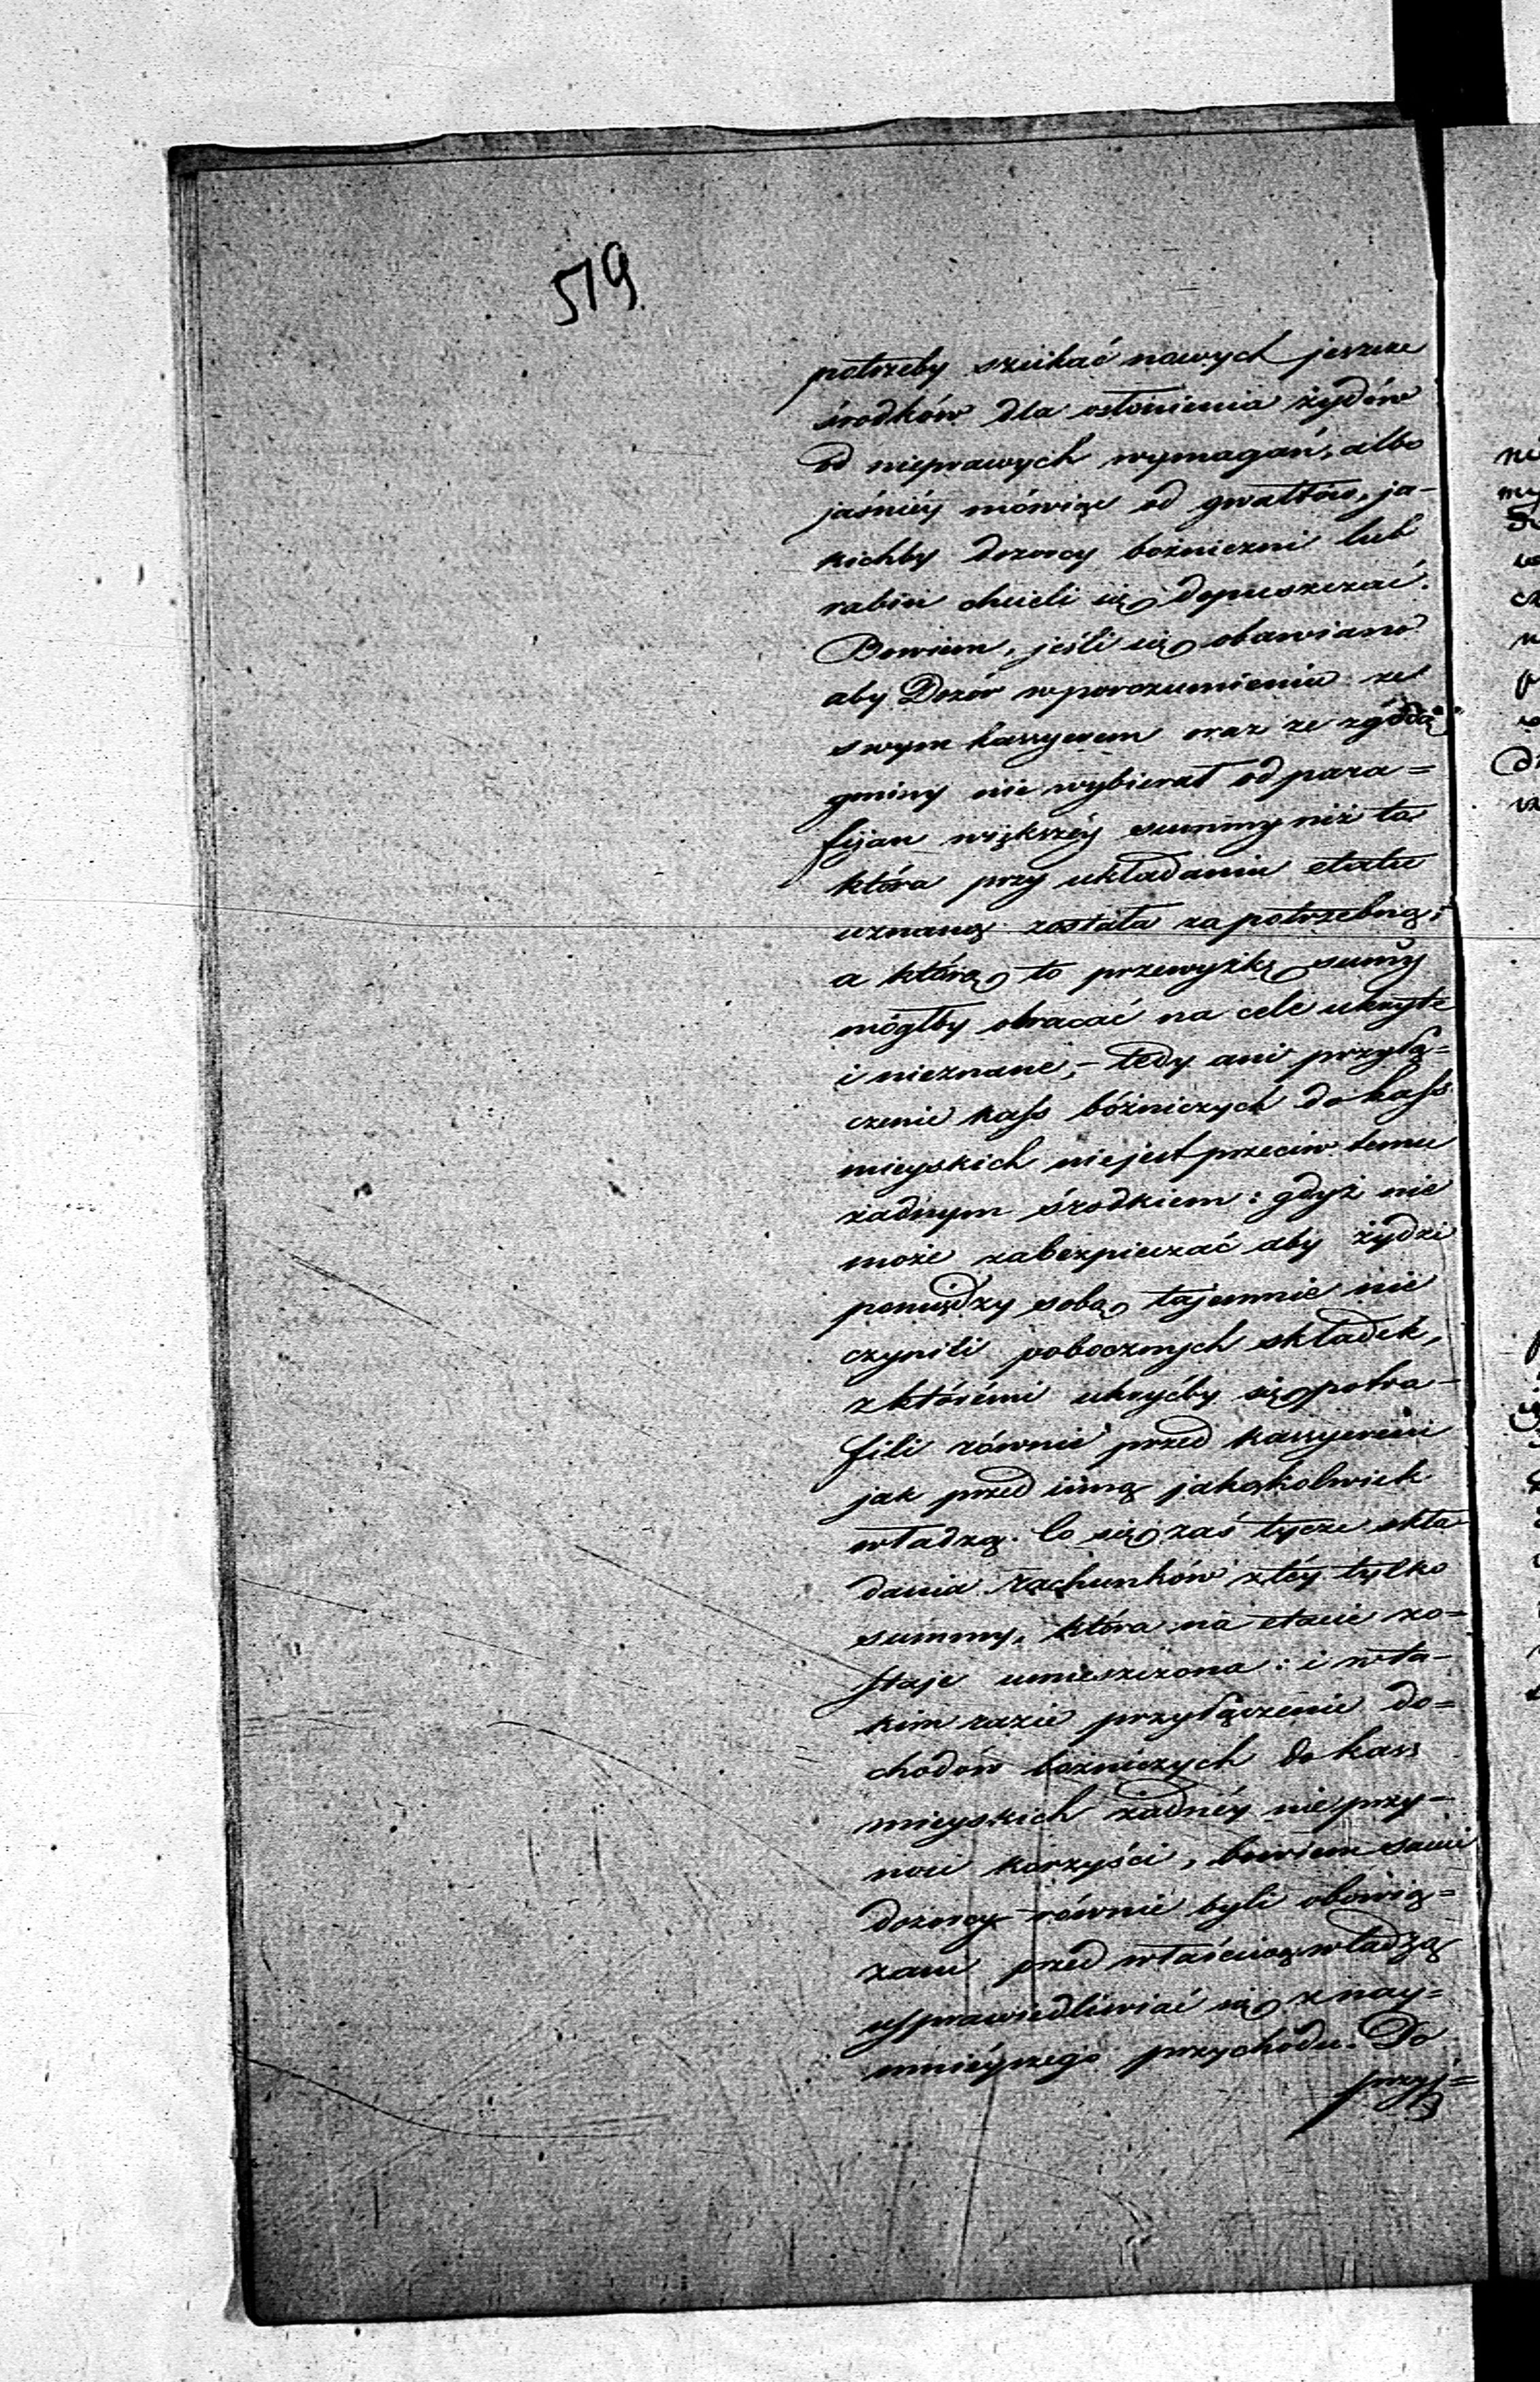 519
potrzeby szukać nowych jeszcze
środków dla osłonienia żydów
od nieprawych wymagań, albo
jaśniéy mówiąc od gwałtów, ja-
kichby dozorcy bożniczni lub
rabini chcieli się dopuszczać.
Bowiem, jeśli się obawiano
aby Dozór w porozumieniu ze
swym kassyerem oraz ze zgodą
gminy nie wybierał od para=
fijan większéy summy niż ta
która przy układaniu etatu
uznaną została za potrzebną;
a którą to przewyżkę summy
mógłby obracać na cele ukryte
i nieznane,- tedy ani przyłą=
czenie kass bóżniczych do kass
mieyskich nie jest przeciw temu
żadnym środkiem: gdyż nie
może zabezpieczać aby żydzi
pomiędzy sobą tajemnie nie
czynili pobocznych składek,
z któremi ukryćby się potra-
fili równie przed kassyerem
jak przed inną jakąkolwiek
władzą. Co się zaś tycze skła
dania rachunków z téy tylko
summy, która na etacie zo=
staje umieszczona: i w ta-
kim razie przyłączenie do=
chodów bożniczych do kass
mieyskich żadnéy nie przy-
nosi korzyści, bowiem sami
dozorcy równie byli obowią=
zani przed właściwą władzą
usprawiedliwiać się z nay=
mnieyszego przychodu. Do
przyj=